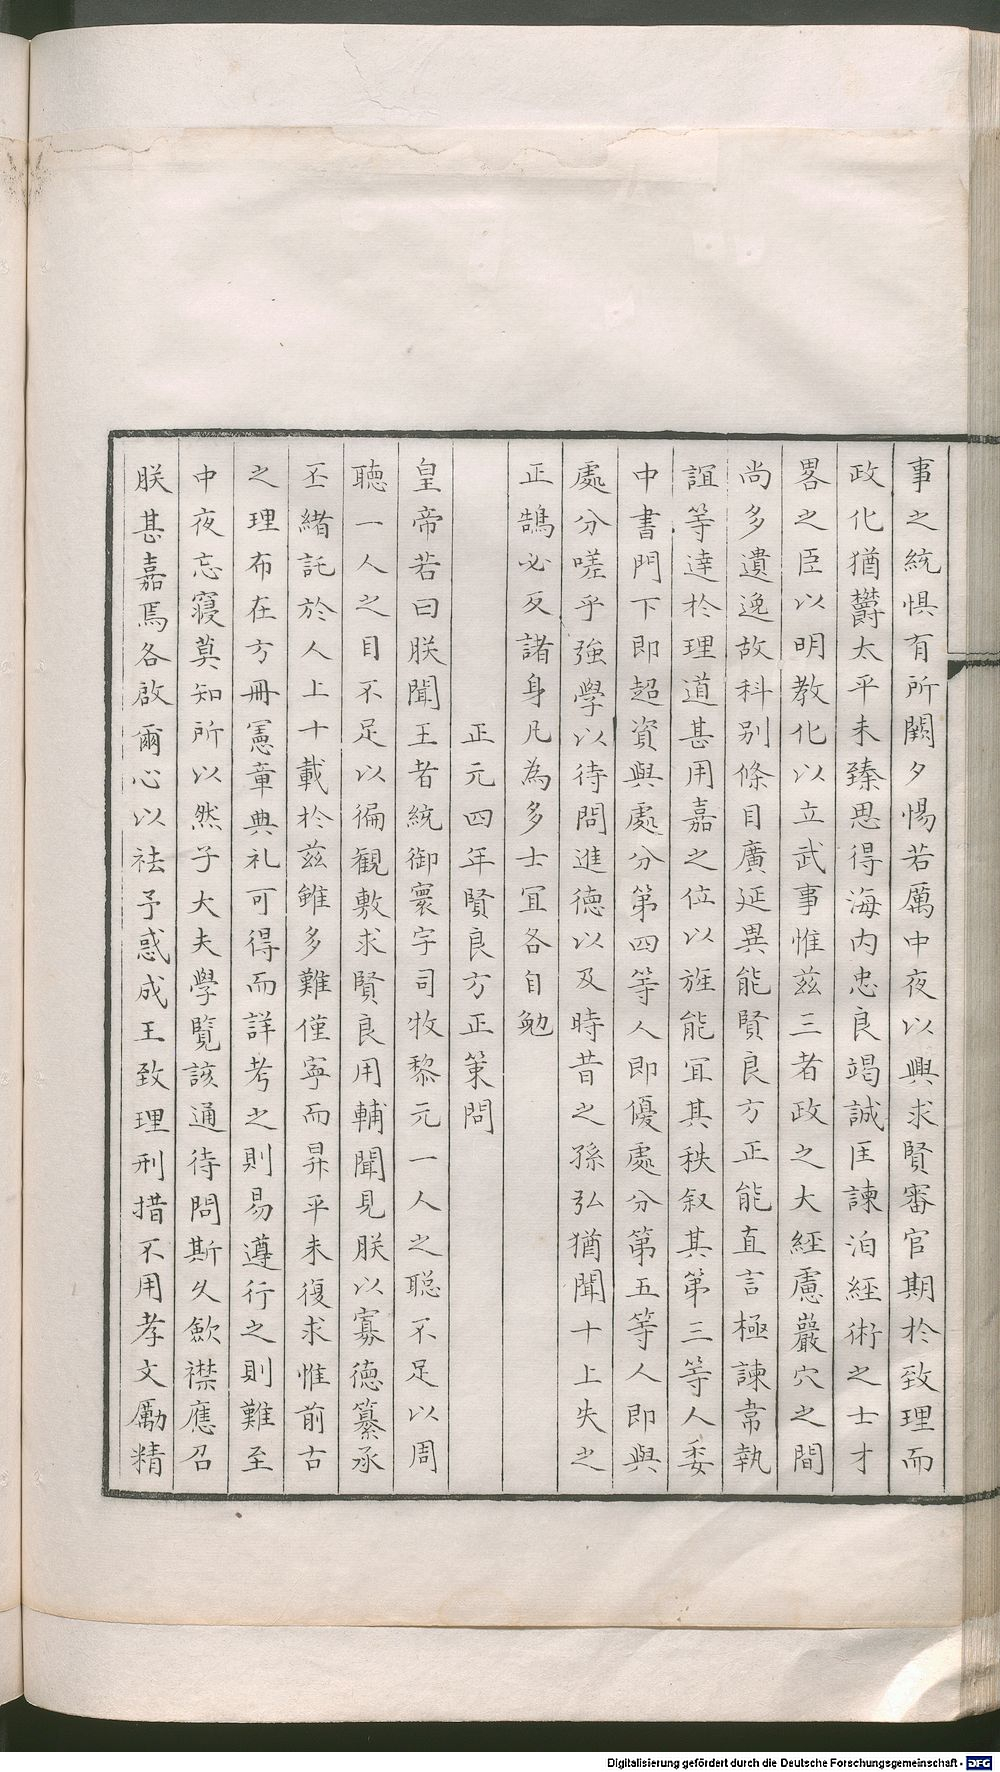 事之統惧有所闕夕惕若厲中夜以興求賢審官期於致理而
政化猶欝太平未臻思得海内忠良竭誠匡諫洎經術之士才
畧之臣以明教化以立武事惟茲三者政之大經慮巖穴之間
尚多遺逸故科别條目廣延異能賢良方正能直言極諫韋執
誼等達於理道甚用嘉之位以旌能宜其秩叙其第三等人委
中書門下即超資與處分第四等人即優處分第五等人即與
處分嗟乎強學以待問進德以及時昔之孫弘猶聞十上失之
正鵠必反諸身凡為多士宜各自勉
正元四年賢良方正策問
皇帝若曰朕聞王者統御寰宇司牧黎元一人之聡不足以周
聽一人之目不足以徧觀敷求賢良用輔聞見朕以寡德纂承
丕緒託於人上十載於茲雖多難僅寧而昇平未復求惟前古
之理布在方冊憲章典礼可得而詳考之則易遵行之則難至
中夜忘寢莫知所以然子大夫學覧該通待問斯久歛襟應召
朕甚嘉焉各啟爾心以祛予惑成王致理刑措不用孝文勵精
Digitalisierung gefördert durch die Deutsche Forschungsgemeinschaft - DFG